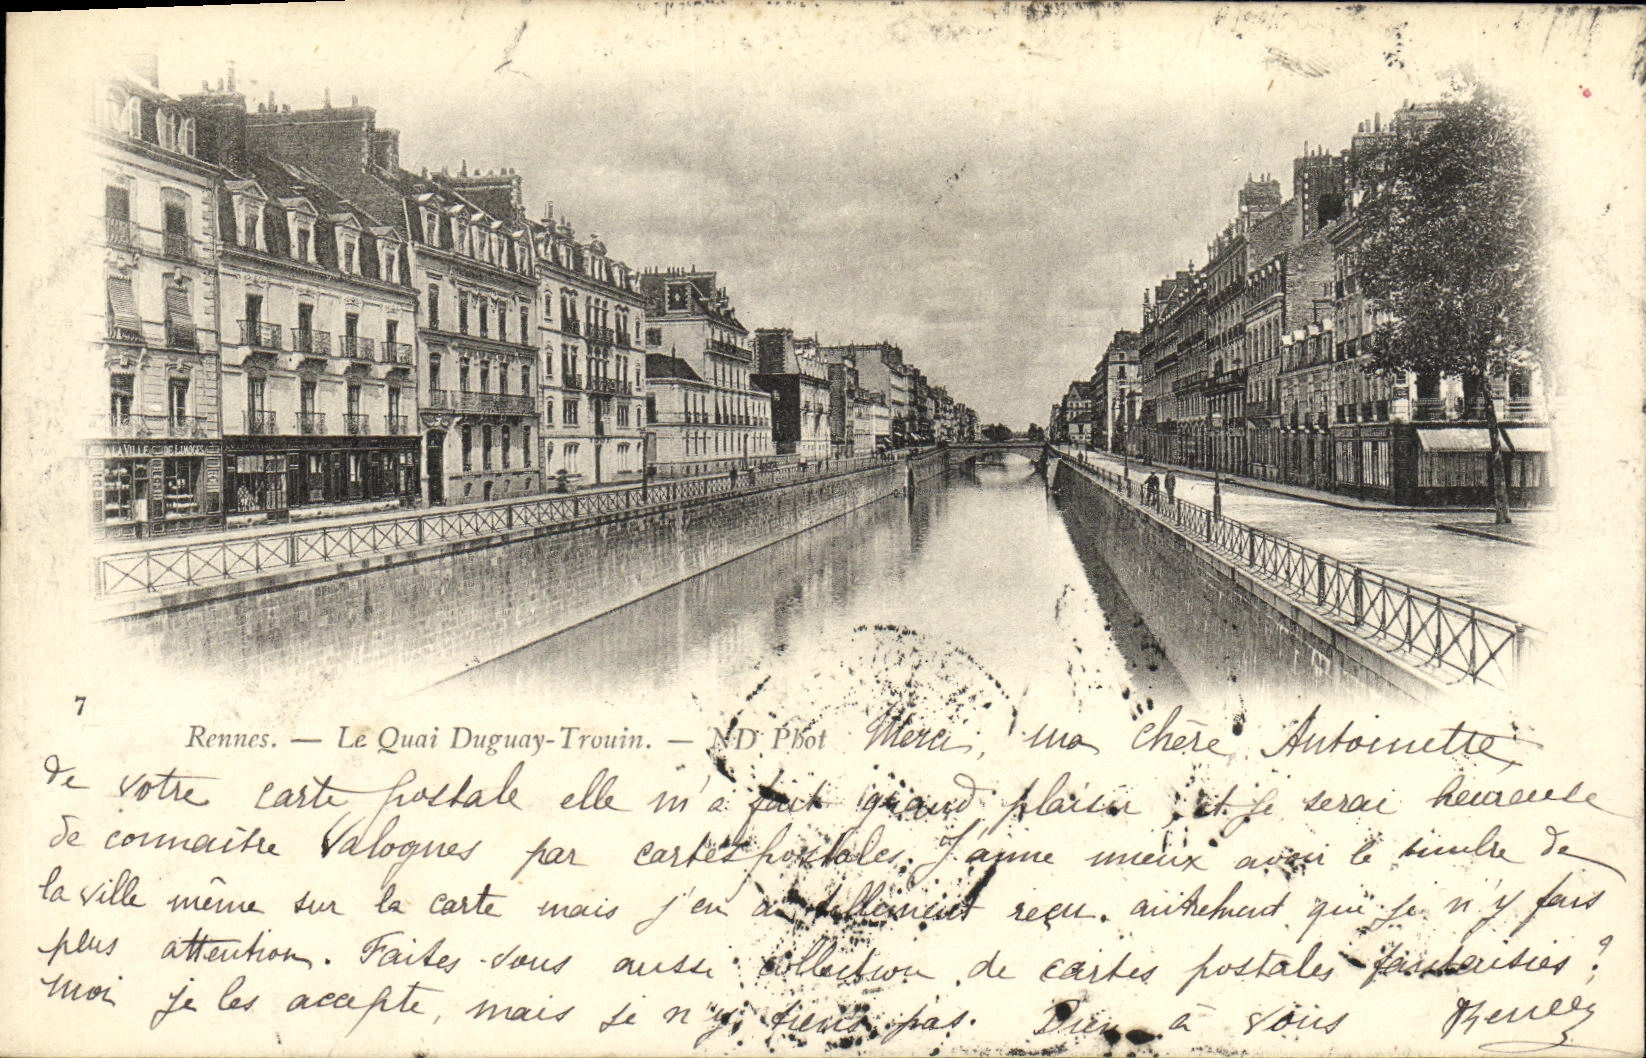 A LA VILLE DE LIMOGES
7
Rennes. — Le Quai Duguay-Trouin. — ND Phot
Merci, ma chère Antoinette,
de votre carte postale elle m'a fait grand plaisir et je serai heureuse
de connaître Valognes par cartes postales. J'aime mieux avoir le timbre de
la ville même sur la carte mais j'en ai tellement reçu autrement que je n'y fais
plus attention. Faites-vous aussi collection de cartes postales fantaisies ?
Moi je les accepte, mais je n'y tiens pas. Bien à vous